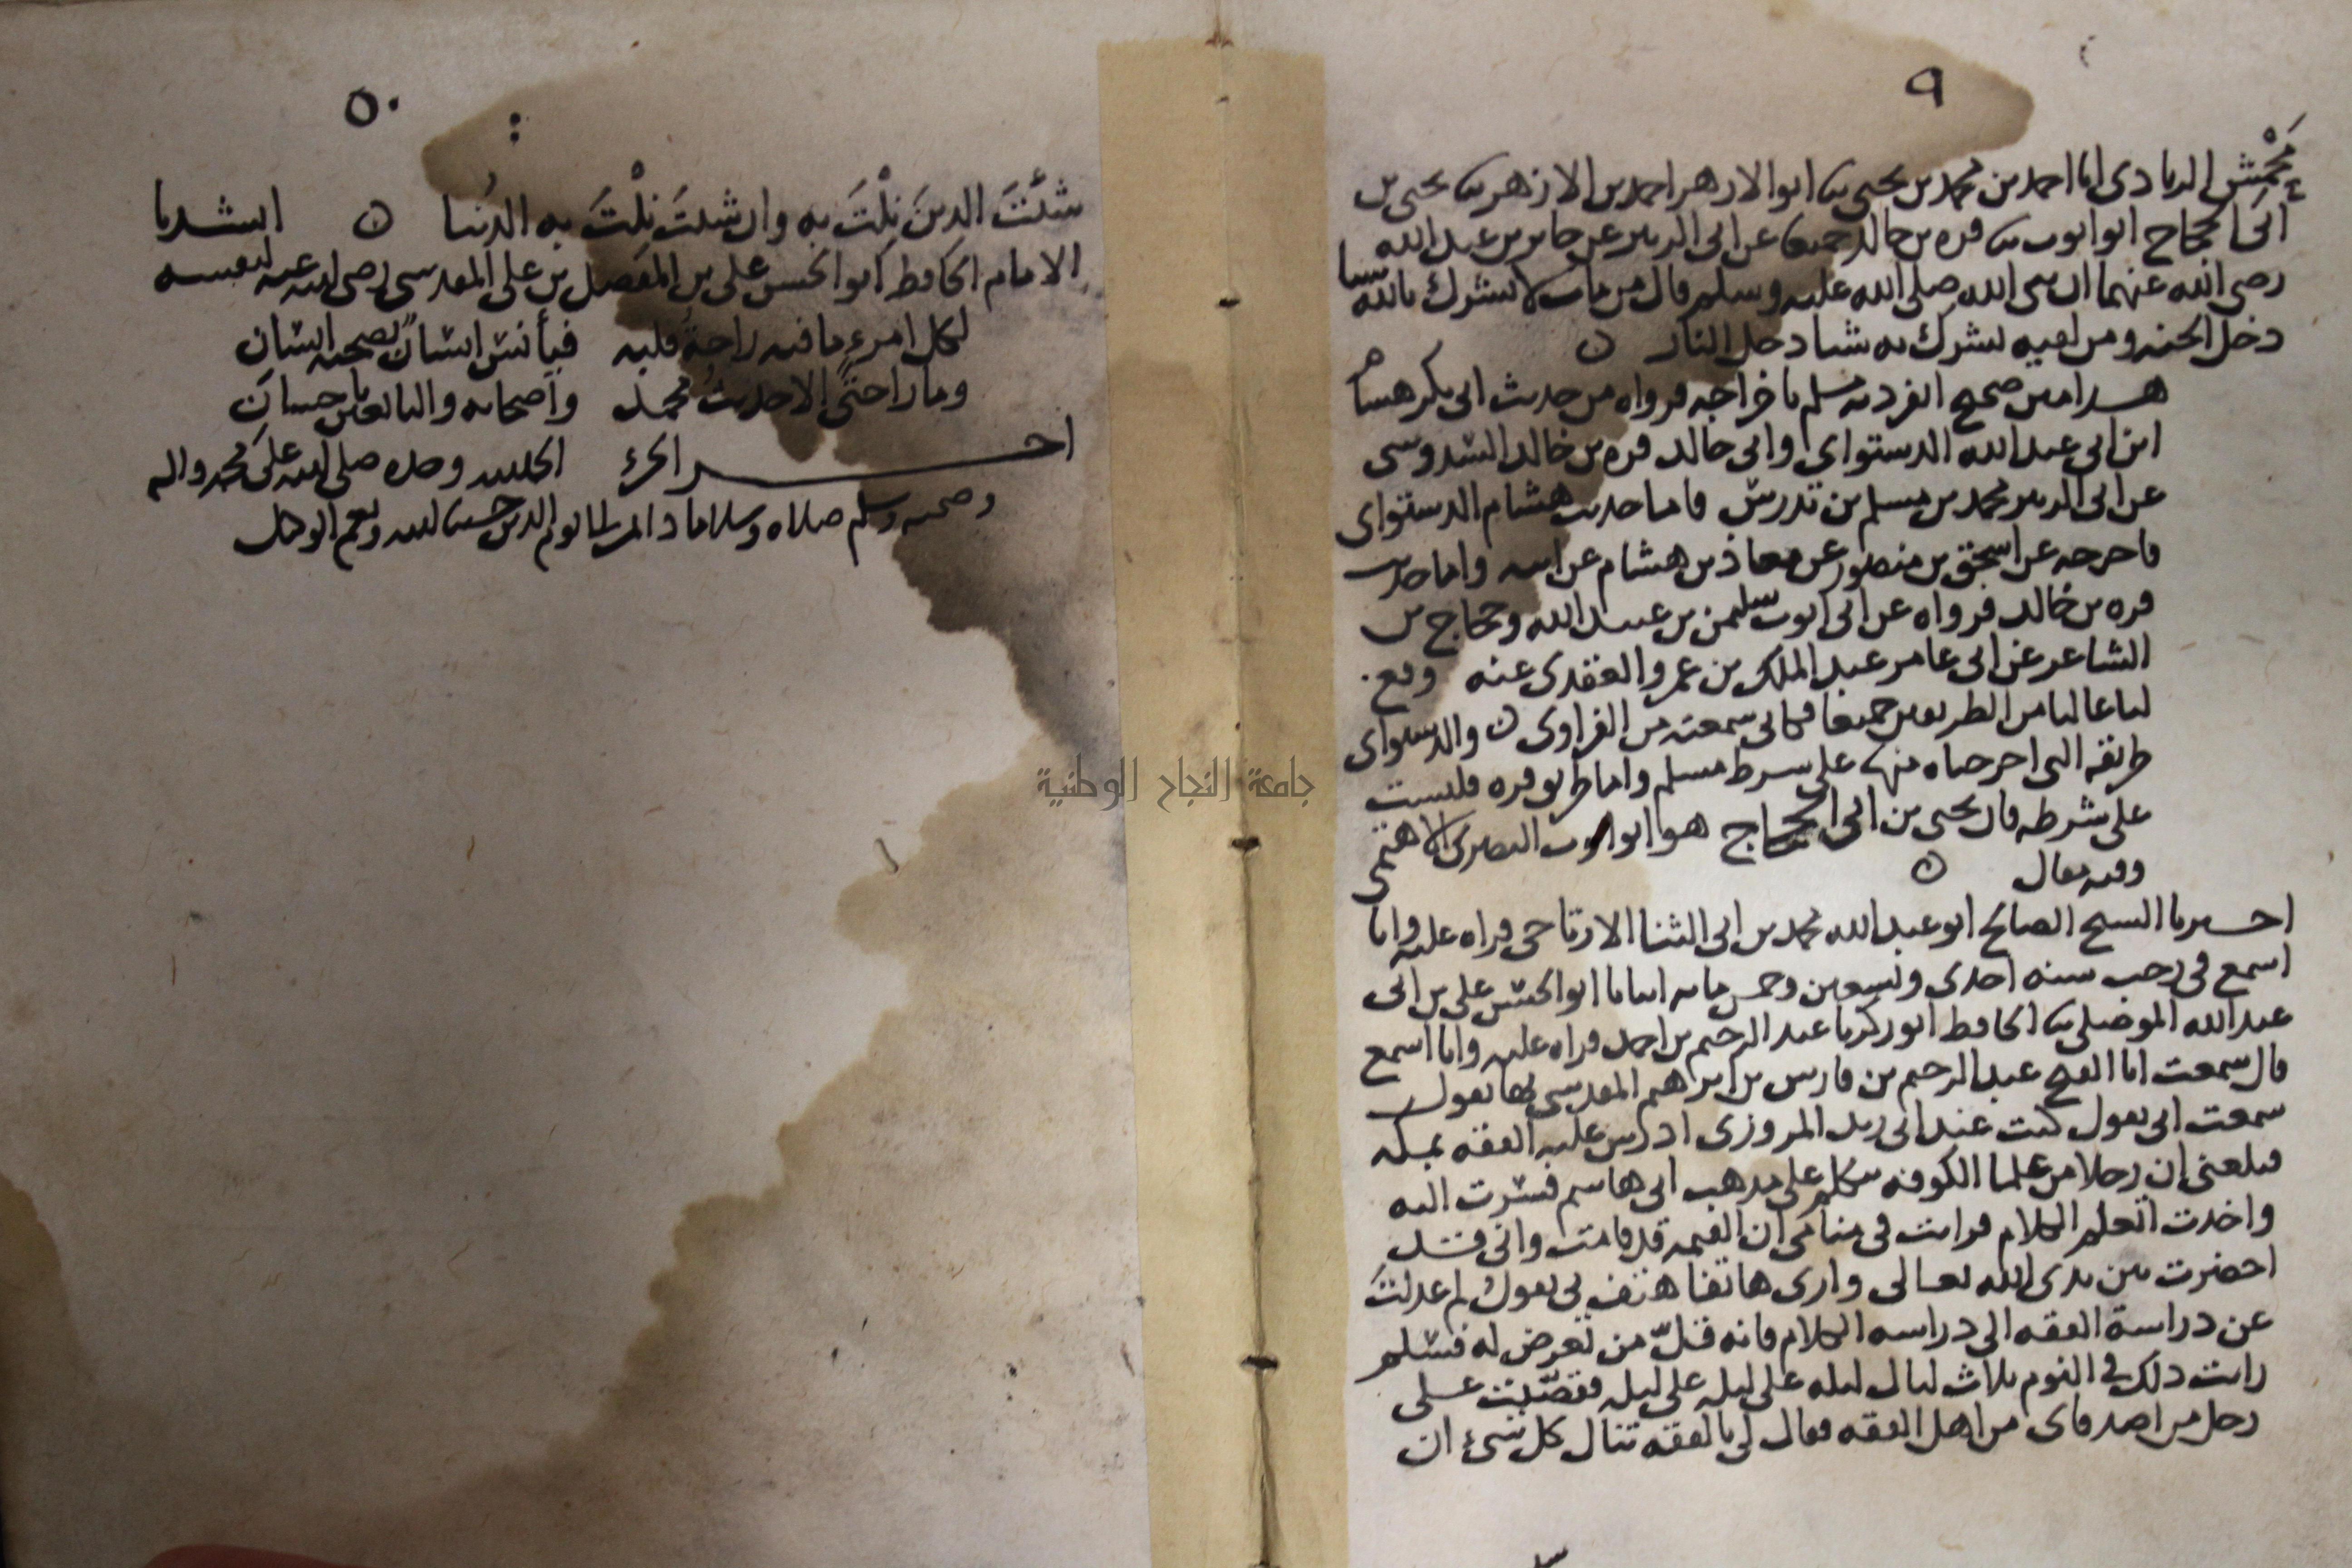 ٩
مَحْمِش الزيادي انا احمد بن محمد بن يحيى نا ابو الازهر احمد بن الازهر نا يحيى بن
أبي الحجاج ابو ايوب نا قره بن خالد جميعا عن ابي الزبير عن جابر بن عبد الله
رضي الله عنهما ان نبي الله صلى الله عليه وسلم قال من مات لا يشرك بالله شيا
دخل الجنه ومن لقيه يشرك به شيا دخل النار
هذا متن صحيح انفرد به مسلم باخراجه فرواه من حديث ابي بكر هشام
ابن ابي عبد الله الدستواي وابي خالد قره بن خالد السدوسي
عن ابي الزبير محمد بن مسلم بن تدرس فاما حديث هشام الدستواي
فاخرجه عن اسحق بن منصور عن معاذ بن هشام عن ابيه واما حديث
قره بن خالد فرواه عن ابي ايوب سليمن بن عبيد الله وحجاج بن
الشاعر عن ابي عامر عبد الملك بن عمرو العقدي عنه وقع
لنا عاليا من الطريقين جميعا فكاني سمعته من الفراوي والدستواي
طريقه التي اخرجناه منها على شرط مسلم واما طريق قره فليست
على شرطه فان يحيى بن ابي الحجاج هو ابو ايوب البصري الاهتمي
وفيه مقال
اخبرنا الشيخ الصالح ابو عبد الله محمد بن ابي الثنا الارتاحي قراه عليه وانا
اسمع في رجب سنه احدى وتسعين وخمس مايه انبانا ابو الحسن علي بن ابي
عبد الله الموصلي نا الحافظ ابو زكريا عبد الرحيم بن احمد قراه عليه وانا اسمع
قال سمعت ابا الفتح عبد الرحيم بن فارس بن ابرهيم المقدسي بها يقول
سمعت ابي يقول كنت عند ابي زيد المروزي ادرس عليه الفقه بمكه
فبلغني ان رجلا من علما الكوفه يتكلم على مذهب ابي هاشم فسرت اليه
واخذت اتعلم الكلام فرايت في منامي ان القيمه قد قامت واني قد
احضرت بين يدي الله تعالى وارى هاتفا هتف بي يقول لم عدلت
عن دراسة الفقه الى دراسه الكلام فانه قلّ من تعرض له فسلم
رايت ذلك في النوم ثلاث ليال ليله على ليله على ليله فقصصت على
رجل من اصدقاي من اهل الفقه فقال لي بالفقه تنال كل شيء ان
٥٠
شئتَ الدينَ نِلْتَ به وان شئتَ نِلْتَ به الدُنيا انشدنا
الامام الحافظ ابو الحسن علي بن المفضل بن علي المقدسي رضي الله عنه لنفسه
لكل امرء ما فيه راحة قلبه فيأنس انسان بصحبه انسان
وما راحتي الا حديث محمد واصحابه والتابعين باحسان
اخر الجزء الحمد لله وحده صلى الله على محمد واله
وصحبه وسلم صلاه وسلاما دايمين الى يوم الدين حسبنا الله ونعم الوكيل
جامعة النجاح الوطنية